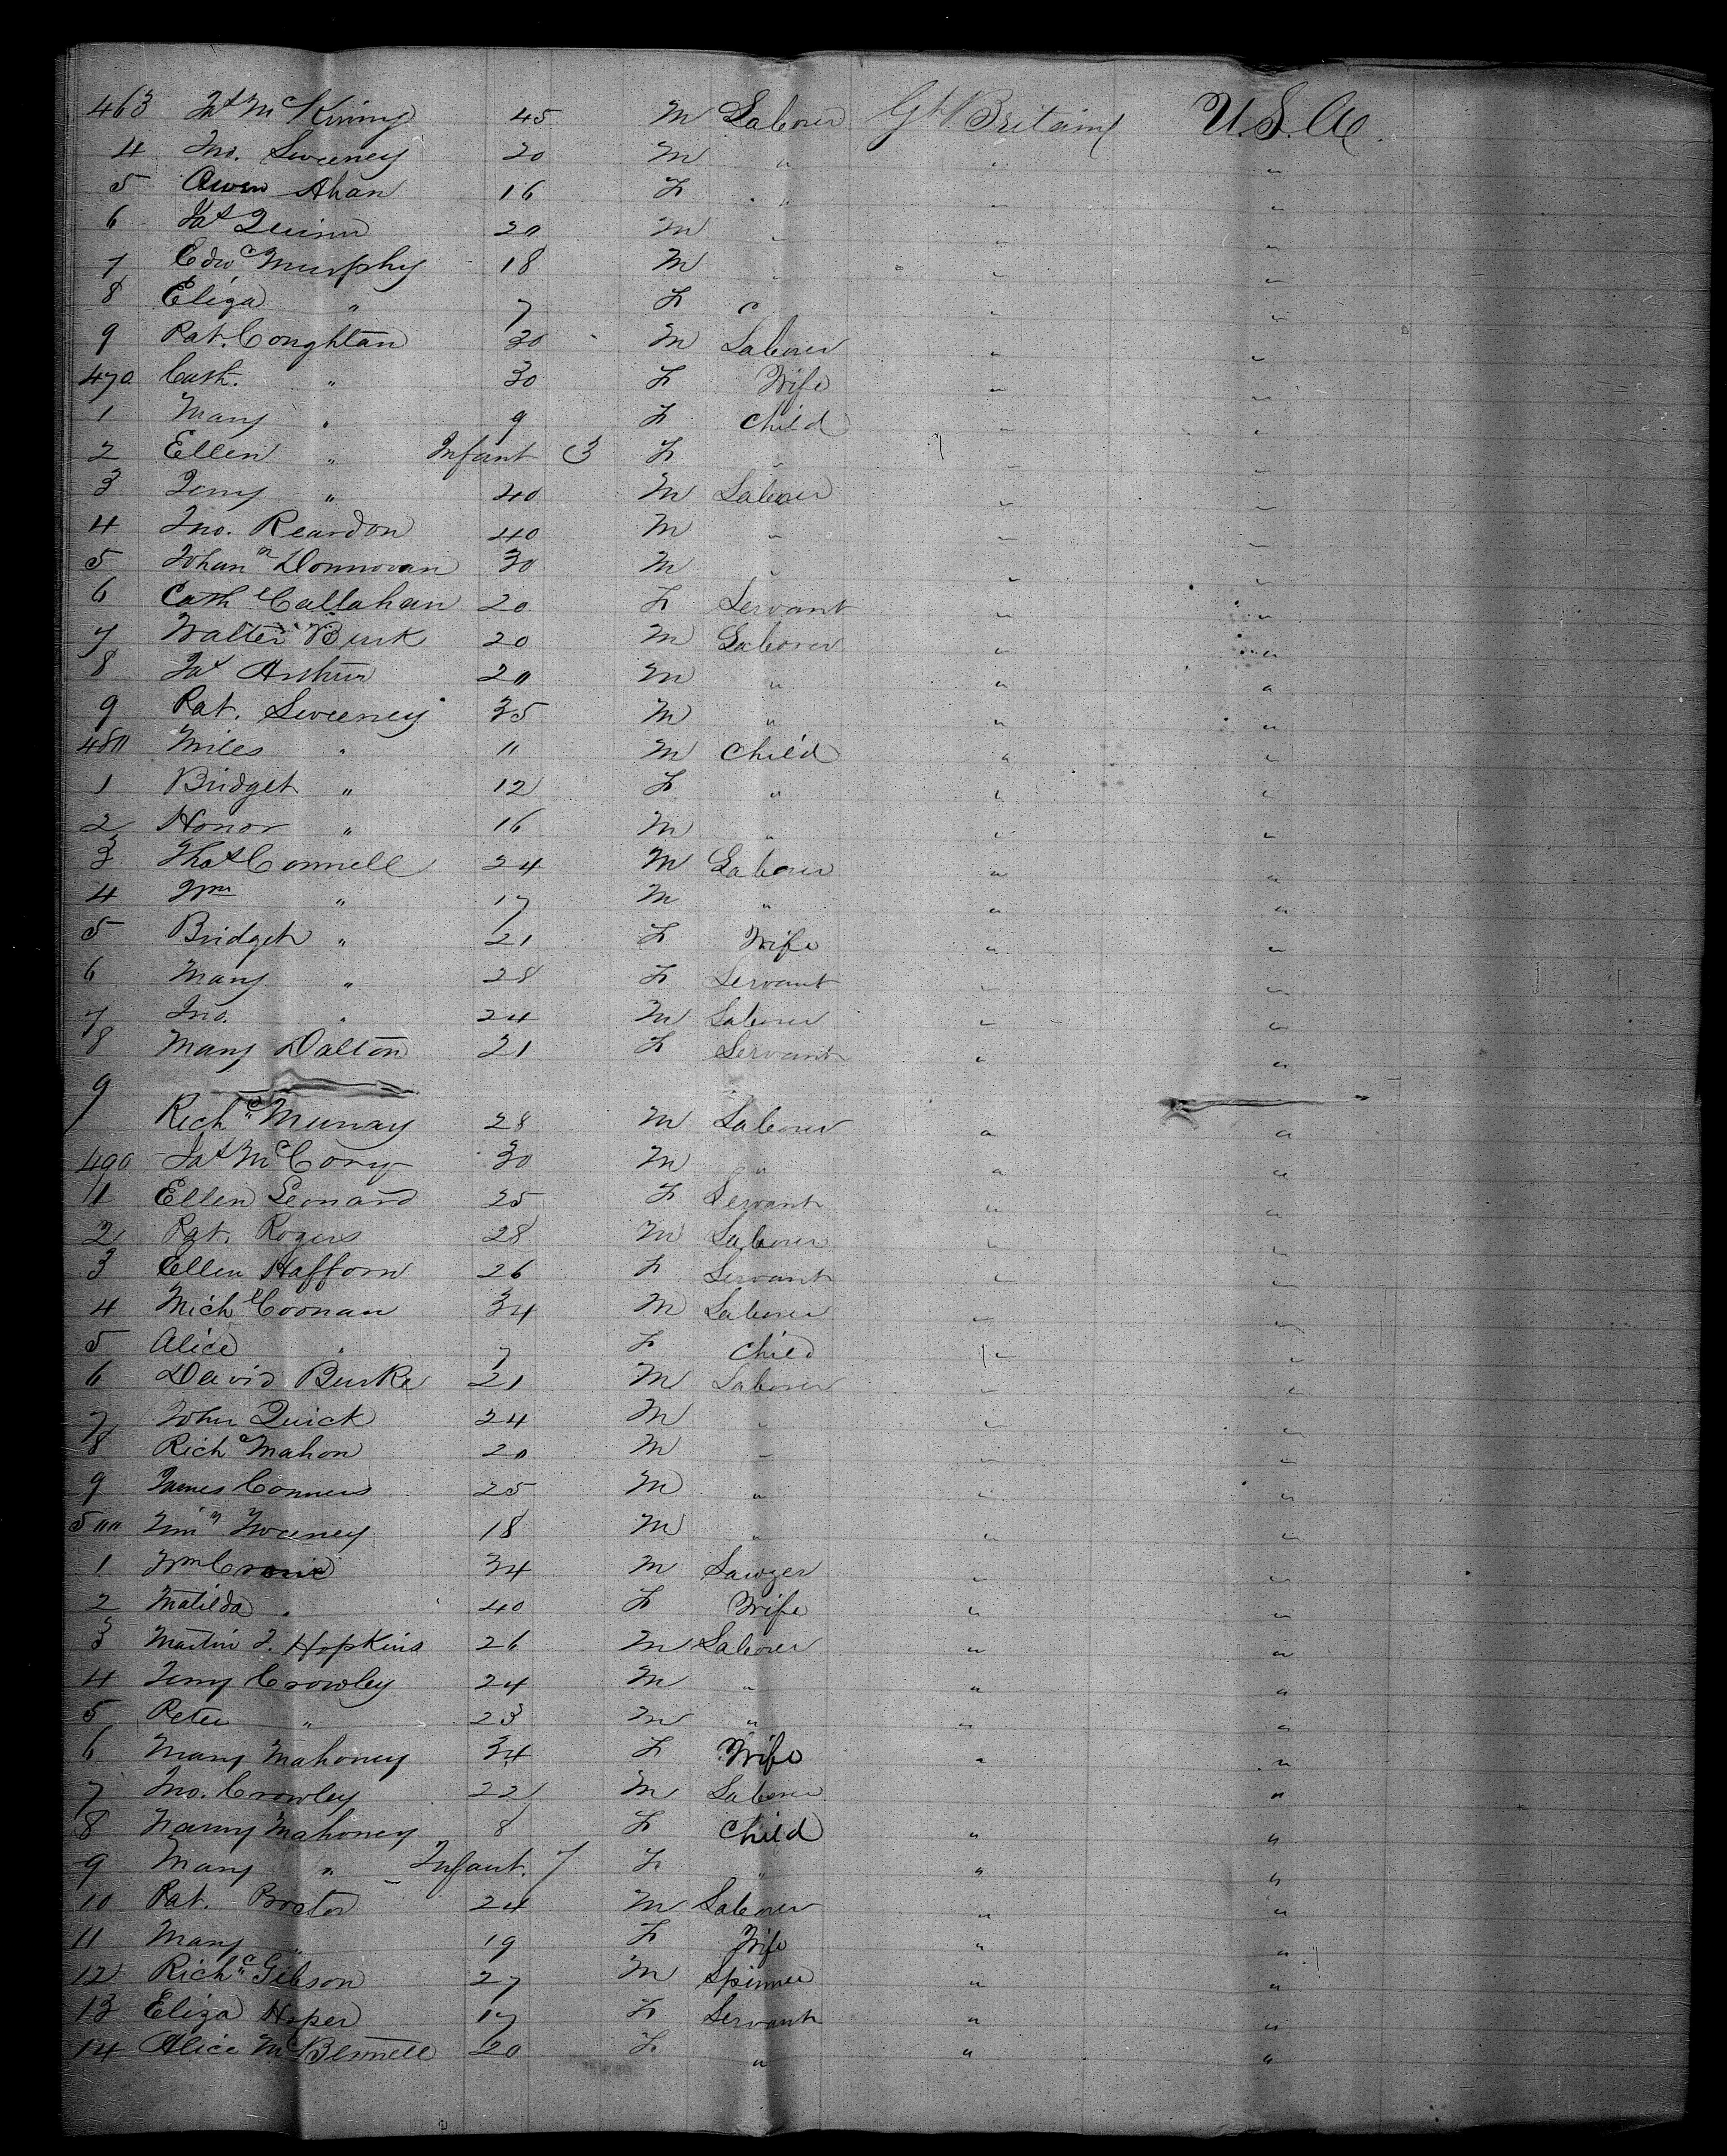 463 Jas McKinny 45 M Laborer Gt Britain U.S.A.
4 Jno. Sweeney 20 M " " "
5 Owen Ahan 16 F " " "
6 Jas Quinn 20 M " " "
7 Edwd Murphy 18 M " " "
8 Eliza " 7 F C " "
9 Pat. Coughlan 30 M Laborer " "
470 Cath. " 30 F Wife " "
1 Mary " 9 F Child " "
2 Ellen " Infant 3 F " " "
3 Jerry " 40 M Laborer " "
4 Jno. Reardon 40 M " " "
5 Johan Donnovan 30 M " " "
6 Cathe Callahan 20 F Servant " "
7 Walter Burk 20 M Laborer " "
8 Jas Arthur 20 M " " "
9 Pat. Sweeney 35 M " " "
480 Miles " 11 M Child " "
1 Bridget " 12 F " " "
2 Honor " 16 M " " "
3 Thos Connell 24 M Laborer " "
4 Wm " 17 M " " "
5 Bridget " 21 F Wife " "
6 Mary " 28 F Servant " "
7 Jno. " 24 M Laborer " "
8 Mary Dalton 21 F Servant " "
9 Richd Murray 28 M Laborer " "
490 Jas McCory 30 M " " "
11 Ellen Leonard 25 F Servant " "
2 Pat. Rogers 28 M Laborer " "
3 Ellen Hafforn 26 F Servant " "
4 Michl Coonan 34 M Laborer " "
5 Alice " 7 F Child " "
6 David Burke 21 M Laborer " "
7 John Quick 24 M " " "
8 Richd Mahon 20 M " " "
9 James Conners 25 M " " "
500 Timy Sweeney 18 M " " "
1 Wm 34 M Sawyer " "
2 Matilda " 40 F Wife " "
3 Martin J. Hopkins 26 M Laborer " "
4 Jerry Crowley 24 M " " "
5 Peter " 23 M " " "
6 Mary Mahoney 34 F Wife " "
7 Jno. Crowley 22 M Laborer "
8 Nanny Mahoney 8 F Child " "
9 Mary " Infant. 7 F " " "
10 Pat. Brostor 24 M Laborer " "
11 Mary " 19 F Wife " "
12 Richd Gibson 27 M Spinner " "
13 Eliza Hoper 17 F Servant " "
14 Alice McBennett 20 F " " "